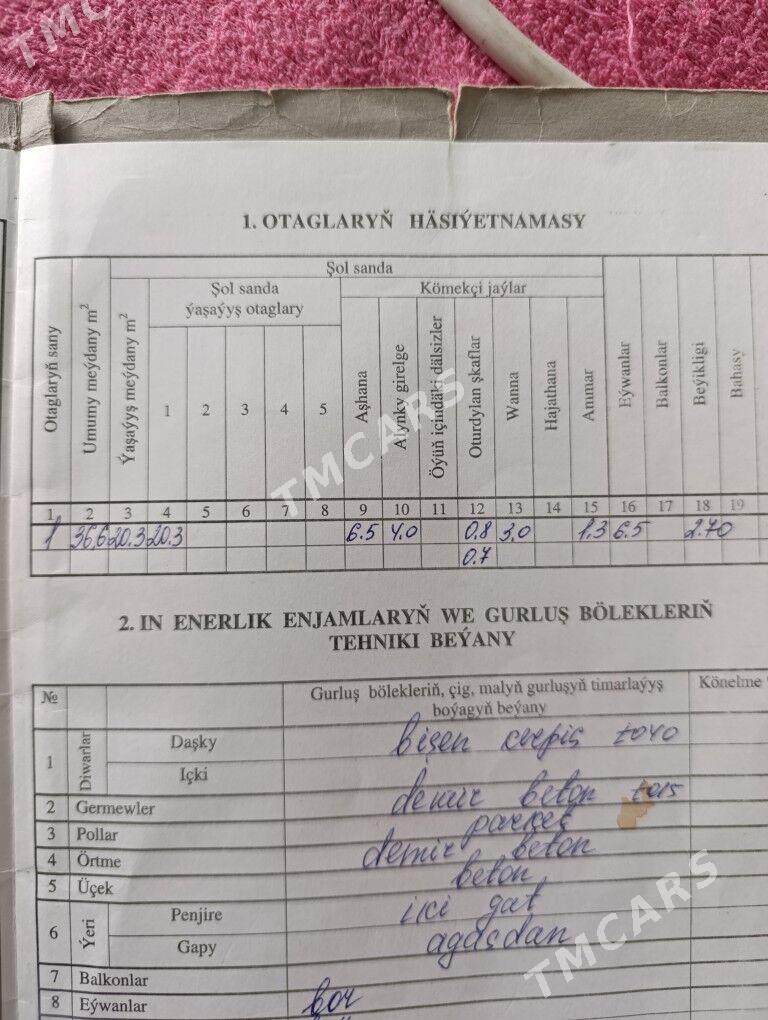 TMCARS
1. OTAGLARYŇ HÄSIÝETNAMASY
Otaglaryň sany
Umumy meýdany m²
Şol sanda
Ýaşaýyş meýdany m²
Şol sanda
ýaşaýyş otaglary
1 2 3 4 5
Kömekçi jaýlar
Aşhana
Alynky girelge
Öýüň içindäki dälsizler
Oturdylan şkaflar
Wanna
Hajathana
Ammar
Eýwanlar
Balkonlar
Beýikligi
Bahasy
TMCARS
1 2 3 4 5 6 7 8 9 10 11 12 13 14 15 16 17 18 19
1 36,6 20.3 20.3 6.5 4.0 0.8 3.0 1.3 6.5 2.70
0.7
2. IN ENERLIK ENJAMLARYŇ WE GURLUŞ BÖLEKLERIŇ
TEHNIKI BEÝANY
№
Gurluş bölekleriň, çig, malyň gurluşyň timarlaýyş
boýagyň beýany
Könelme
1 Diwarlar Daşky bişen
Içki
2 Germewler demir beton
3 Pollar parket
4 Örtme demir beton
5 Üçek beton
6 Ýeri Penjire iki gat
Gapy agaçdan
TMCARS
7 Balkonlar
8 Eýwanlar bar